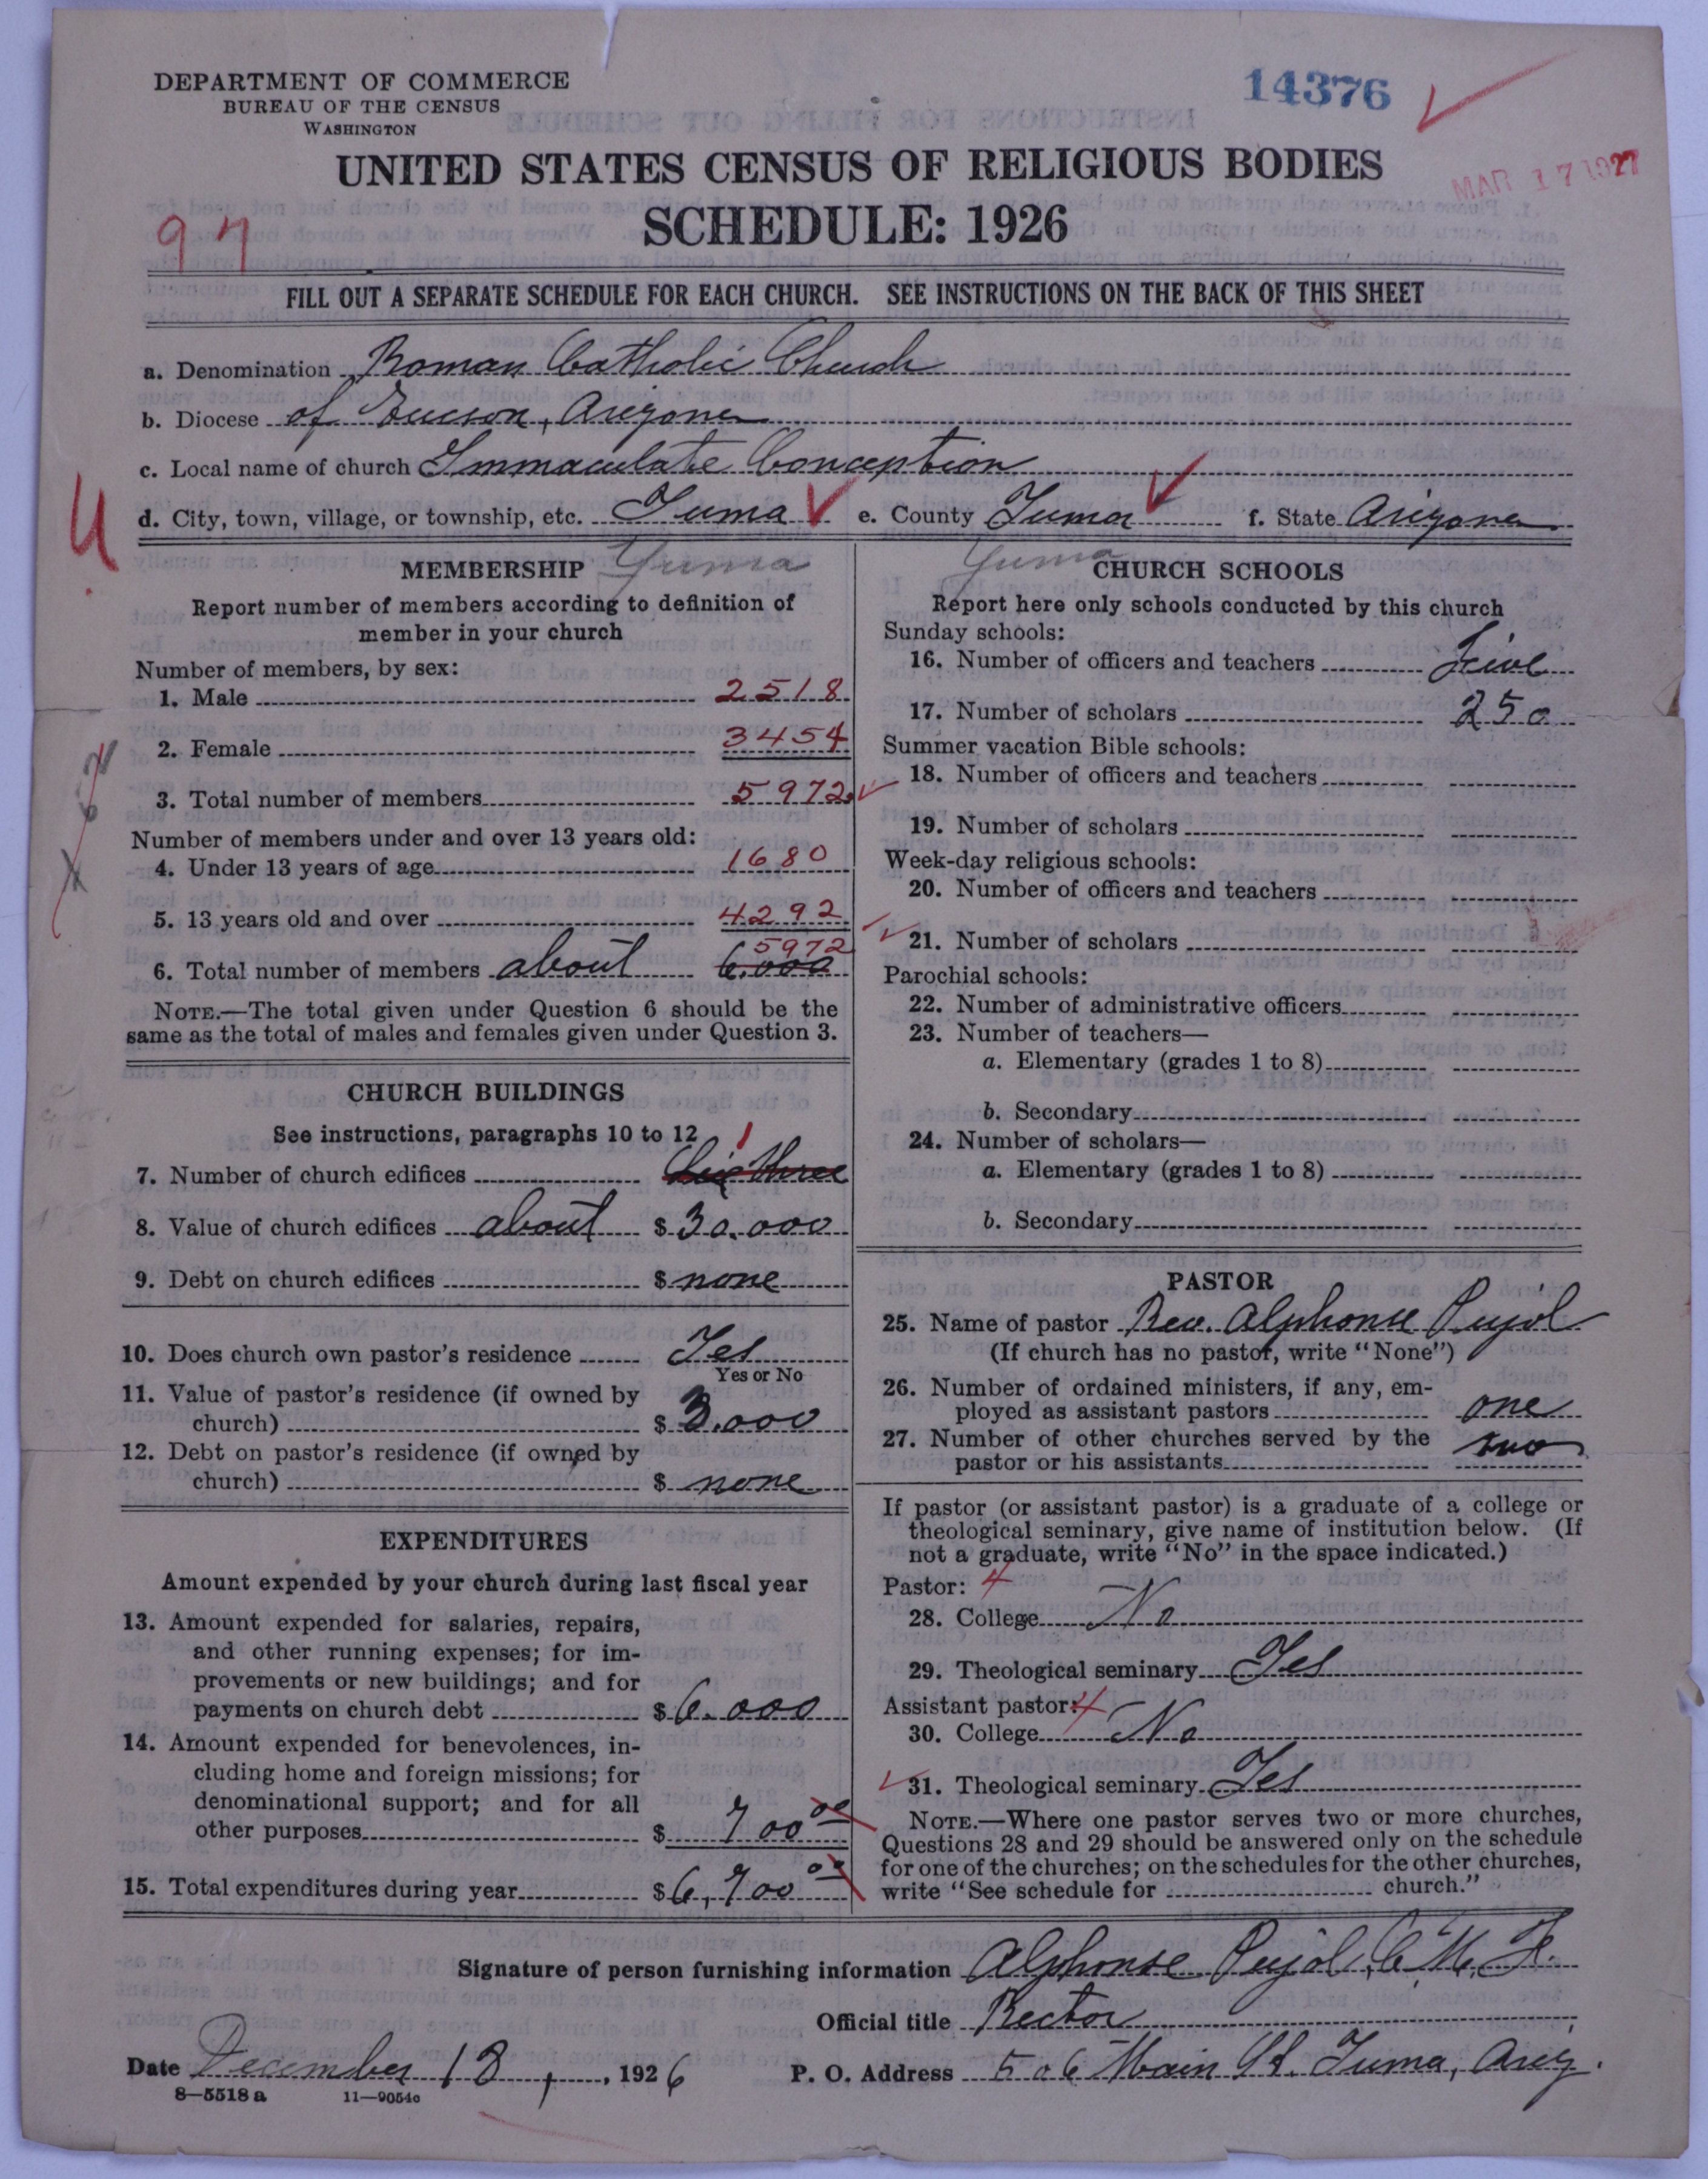 DEPARTMENT OF COMMERCE
BUREAU OF THE CENSUS
WASHINGTON
14376
UNITED STATES CENSUS OF RELIGIOUS BODIES
MAR 17 1927
SCHEDULE: 1926
FILL OUT A SEPARATE SCHEDULE FOR EACH CHURCH. SEE INSTRUCTIONS ON THE BACK OF THIS SHEET
a. Denomination Roman Catholic Church
b. Diocese of Tucson, Arizona
c. Local name of church Immaculate Conception
d. City, town, village, or township, etc. Yuma e. County Yuma f. State Arizona
MEMBERSHIP Yuma
Report number of members according to definition of
member in your church
Number of members, by sex:
1. Male 2518
2. Female 3454
3. Total number of members 5972
Number of members under and over 13 years old:
4. Under 13 years of age 1680
5. 13 years old and over 4292
5972
6. Total number of members about 6.000
NOTE.—The total given under Question 6 should be the
same as the total of males and females given under Question 3.
CHURCH BUILDINGS
See instructions, paragraphs 10 to 12
1
7. Number of church edifices three
8. Value of church edifices about $ 30.000
9. Debt on church edifices $ none
10. Does church own pastor's residence Yes
Yes or No
11. Value of pastor's residence (if owned by
church) $ 3.000
12. Debt on pastor's residence (if owned by
church) $ none
EXPENDITURES
Amount expended by your church during last fiscal year
13. Amount expended for salaries, repairs,
and other running expenses; for im-
provements or new buildings; and for
payments on church debt $ 6.000
14. Amount expended for benevolences, in-
cluding home and foreign missions; for
denominational support; and for all
other purposes $ 700 00
15. Total expenditures during year $ 6,700 00
Yuma CHURCH SCHOOLS
Report here only schools conducted by this church
Sunday schools:
16. Number of officers and teachers Five
17. Number of scholars 250
Summer vacation Bible schools:
18. Number of officers and teachers
19. Number of scholars
Week-day religious schools:
20. Number of officers and teachers
21. Number of scholars
Parochial schools:
22. Number of administrative officers
23. Number of teachers—
a. Elementary (grades 1 to 8)
b. Secondary
24. Number of scholars—
a. Elementary (grades 1 to 8)
b. Secondary
PASTOR
25. Name of pastor Rev. Alphonse Pujol
(If church has no pastor, write "None")
26. Number of ordained ministers, if any, em-
ployed as assistant pastors one
27. Number of other churches served by the
pastor or his assistants two
If pastor (or assistant pastor) is a graduate of a college or
theological seminary, give name of institution below. (If
not a graduate, write "No" in the space indicated.)
Pastor: 4
28. College No
29. Theological seminary Yes
Assistant pastor: 4
30. College No
31. Theological seminary Yes
NOTE.—Where one pastor serves two or more churches,
Questions 28 and 29 should be answered only on the schedule
for one of the churches; on the schedules for the other churches,
write "See schedule for church."
Signature of person furnishing information Alphonse Pujol C. M. F.
Official title Rector
Date December 18, 1926 P. O. Address 506 Main St. Yuma, Ariz.
8—5518 a 11—9054c